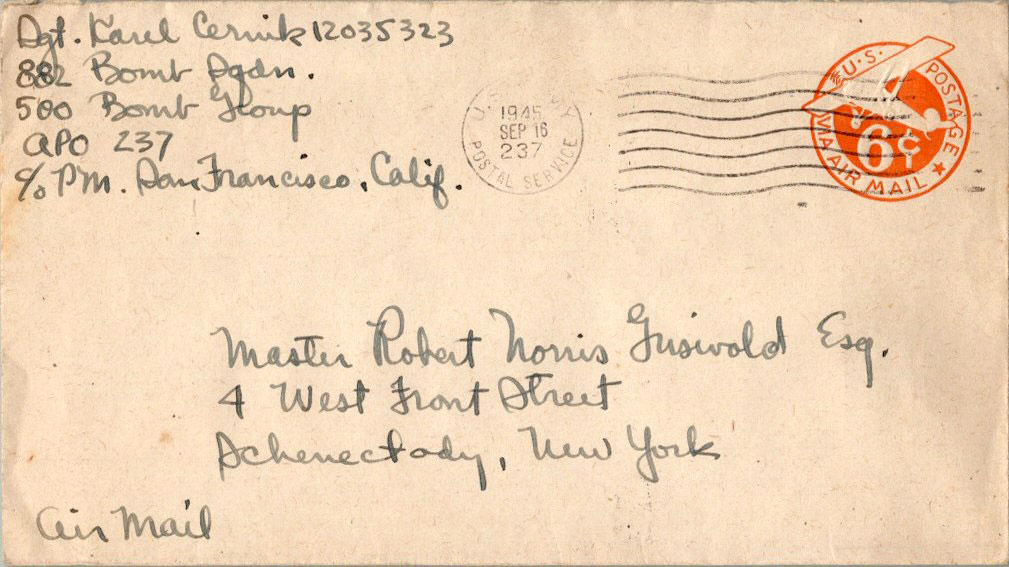 Sgt. Karel Cernik 12035323
882 Bomb Sqdn.
500 Bomb Group
APO 237
c/o PM. San Francisco, Calif.
U.S. ARMY
1945
SEP 16
237
POSTAL SERVICE
U.S. POSTAGE
6¢
VIA AIR MAIL
Master Robert Norris Griswold Esq.
4 West Front Street
Schenectady, New York
Air Mail